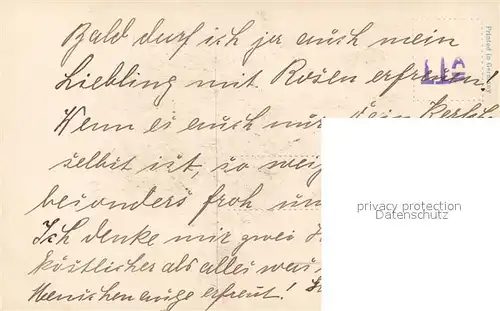 Bald darf ich ja auch mein
Liebling mit Rosen erfreuen!
Wenn es auch nur dein
selbst ist, so
besonders froh
Ich denke mir zwei
köstlicher als alles was
Menschenauge erfreut!
Printed in Germany
LIA
privacy protection
Datenschutz